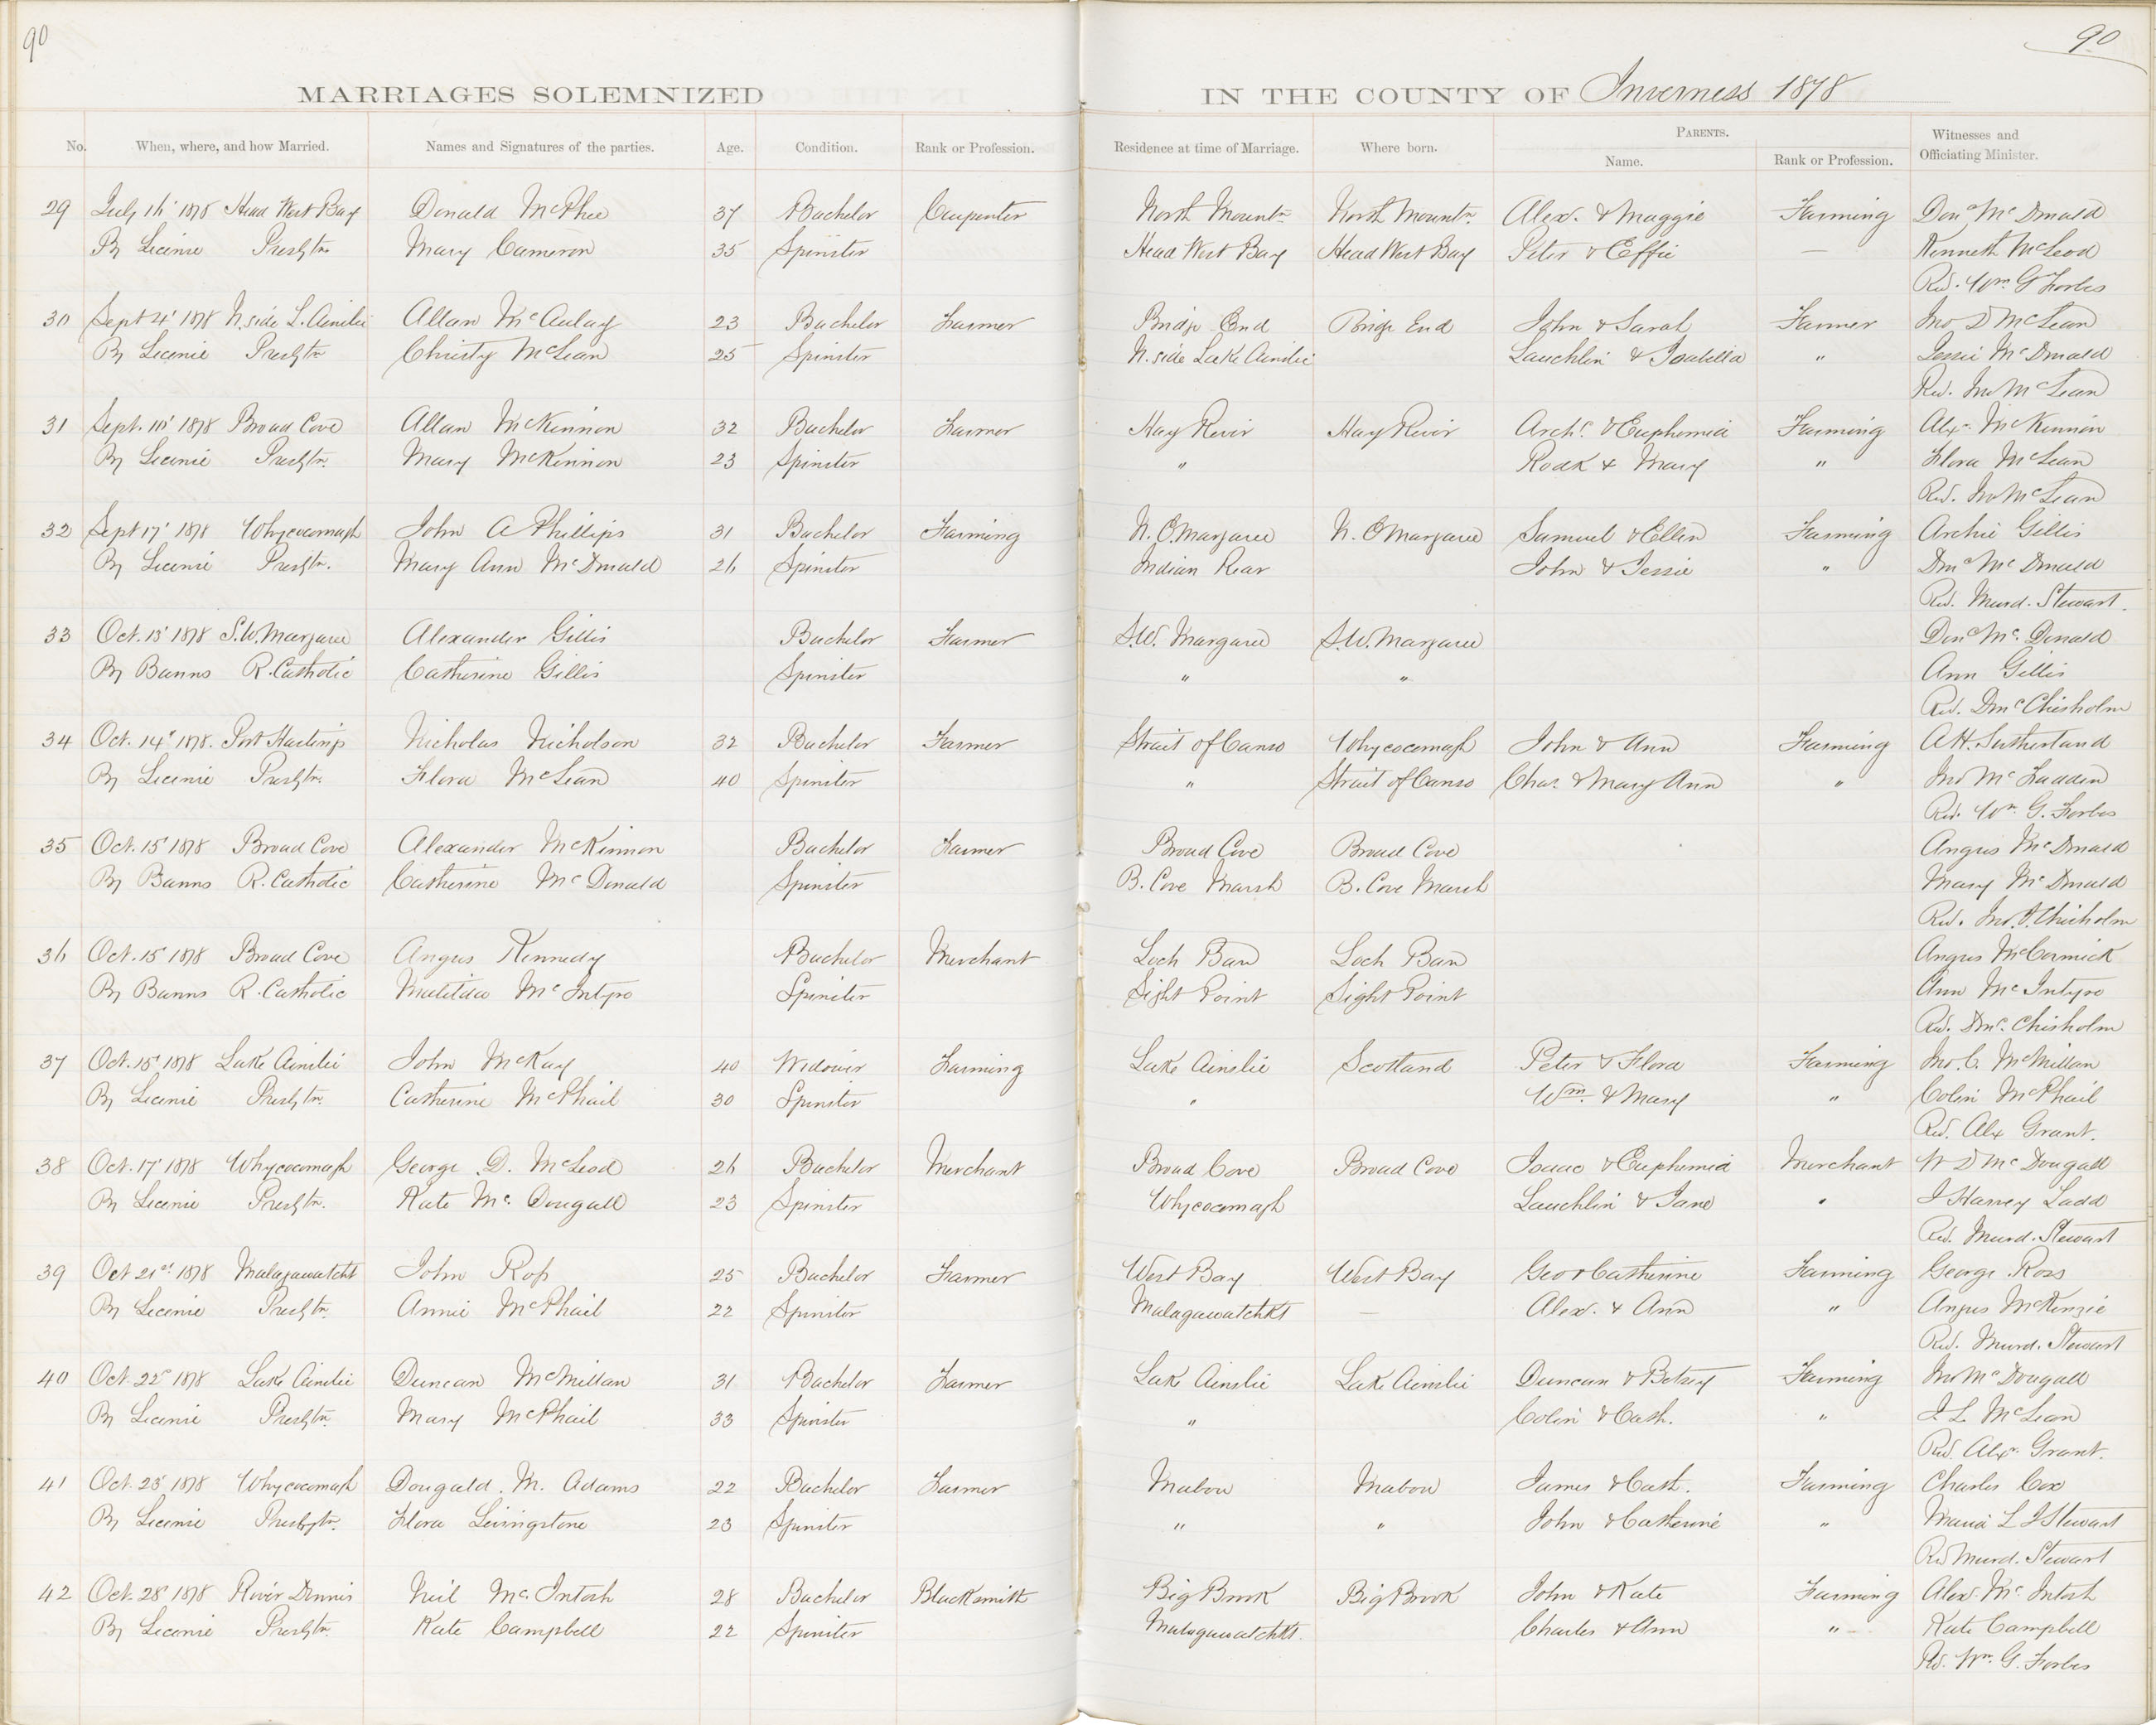 90
90
MARRIAGES SOLEMNIZED IN THE COUNTY OF Inverness 1878
No. When, where, and how Married. Names and Signatures of the parties. Age. Condition. Rank or Profession. Residence at time of Marriage. Where born. PARENTS. Name. Rank or Profession. Witnesses and Officiating Minister.
29 July 16' 1878 Head West Bay Donald McPhee 37 Bachelor Carpenter North Mountn North Mountn. Alexr. & Maggie Farming Dond McDonald
By License Presbytn Mary Cameron 35 Spinster Head West Bay Head West Bay Peter & Effie — Kenneth McLeod
Rev. Wm G Forbes
30 Sept 4' 1878 N. side L. Ainslie Allan McAulay 23 Bachelor Farmer Bridge End Bridge End John & Sarah Farmer Jno D McLean
By License Presbytn Christy McLean 25 Spinster N. side Lake Ainslie Lauchlin & Isabella " Jessie McDonald
Rev. Jno McLean
31 Sept. 10' 1878 Broad Cove Allan McKinnon 32 Bachelor Farmer Hay River Hay River Archd. & Euphemia Farming Alexr. McKinnon
By License Presbytn. Mary McKinnon 23 Spinster " Rodk & Mary " Flora McLean
Rev. Jno McLean
32 Sept 17' 1878 Whycocomagh John A Phillips 31 Bachelor Farming N. E Margaree N. E Margaree Samuel & Ellen Farming Archie Gillis
By License Presbytn. Mary Ann McDonald 26 Spinster Indian Rear John & Jessie " Dond McDonald
Rev. Murd. Stewart.
33 Oct. 13' 1878 S.W. Margaree Alexander Gillis Bachelor Farmer S.W. Margaree S.W. Margaree Dond Mc. Donald
By Banns R. Catholic Catherine Gillis Spinster " " Ann Gillis
Rev. Dond Chisholm
34 Oct. 14' 1878. Port Hastings Nicholas Nicholson 32 Bachelor Farmer Strait of Canso Whycocomagh John & Ann Farming A H. Sutherland
By License Presbytn. Flora McLean 40 Spinster " Strait of Canso Chas. & Mary Ann " Jno McFadden
Rev. Wm G. Forbes
35 Oct. 15' 1878 Broad Cove Alexander McKinnon Bachelor Farmer Broad Cove Broad Cove Angus McDonald
By Banns R. Catholic Catherine McDonald Spinster B. Cove Marsh B. Cove Marsh Mary McDonald
Rev. Jno. Chisholm
36 Oct. 15' 1878 Broad Cove Angus Kennedy Bachelor Merchant Loch Ban Loch Ban Angus McCormick
By Banns R. Catholic Matilda McIntyre Spinster Sight Point Sight Point Ann McIntyre
Rev. Dond. Chisholm
37 Oct. 15' 1878 Lake Ainslie John McKay 40 Widower Farming Lake Ainslie Scotland Peter & Flora Farming Jno. C. McMillan
By License Presbytn. Catherine McPhail 30 Spinster " Wm. & Mary " Colin McPhail
Rev. Alex Grant.
38 Oct. 17' 1878 Whycocomagh George D. McLeod 26 Bachelor Merchant Broad Cove Broad Cove Isaac & Euphemia Merchant W D McDougall
By License Presbytn. Kate Mc Dougall 23 Spinster Whycocomagh Lauchlin & Jane " J Harvey Ladd
Rev. Murd. Stewart
39 Oct 21st 1878 Malagawatcht John Ross 25 Bachelor Farmer West Bay West Bay Geo & Catherine Farming George Ross
By License Presbytn. Annie McPhail 22 Spinster Malagawatchkt — Alexr. & Ann " Angus McKenzie
Rev. Murd. Stewart
40 Oct. 22d 1878 Lake Ainslie Duncan McMillan 31 Bachelor Farmer Lake Ainslie Lake Ainslie Duncan & Betsey Farming Jno McDougall
By License Presbytn. Mary McPhail 33 Spinster " Colin & Cath. " J. L McLean
Rev. Alexr. Grant.
41 Oct. 23' 1878 Whycocomagh Dougald. M. Adams 22 Bachelor Farmer Mabou Mabou James & Cath. Farming Charles Cox
By License Presbytn. Flora Livingstone 23 Spinster " " John & Catherine " Maria L J Stewart
Rev Murd. Stewart
42 Oct. 28' 1878 River Dennis Neil McIntosh 28 Bachelor Blacksmith Big Brook Big Brook John & Kate Farming Alexr. McIntosh
By License Presbytn. Kate Campbell 22 Spinster Malagawatchkt. Charles & Ann " Kate Campbell
Rev. Wm. G. Forbes